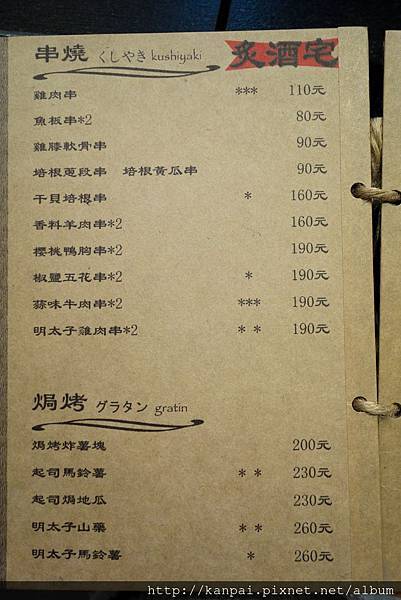 串燒 くしやき kushiyaki 炙酒宅
雞肉串 *** 110元
魚板串*2 80元
雞膝軟骨串 90元
培根蔥段串 培根黃瓜串 90元
干貝培根串 * 160元
香料羊肉串*2 160元
櫻桃鴨胸串*2 190元
椒鹽五花串*2 * 190元
蒜味牛肉串*2 *** 190元
明太子雞肉串*2 * * 190元
焗烤 グラタン gratin
焗烤炸薯塊 200元
起司馬鈴薯 * * 230元
起司焗地瓜 230元
明太子山藥 * * 260元
明太子馬鈴薯 * 260元
http://kanpai.pixnet.net/album